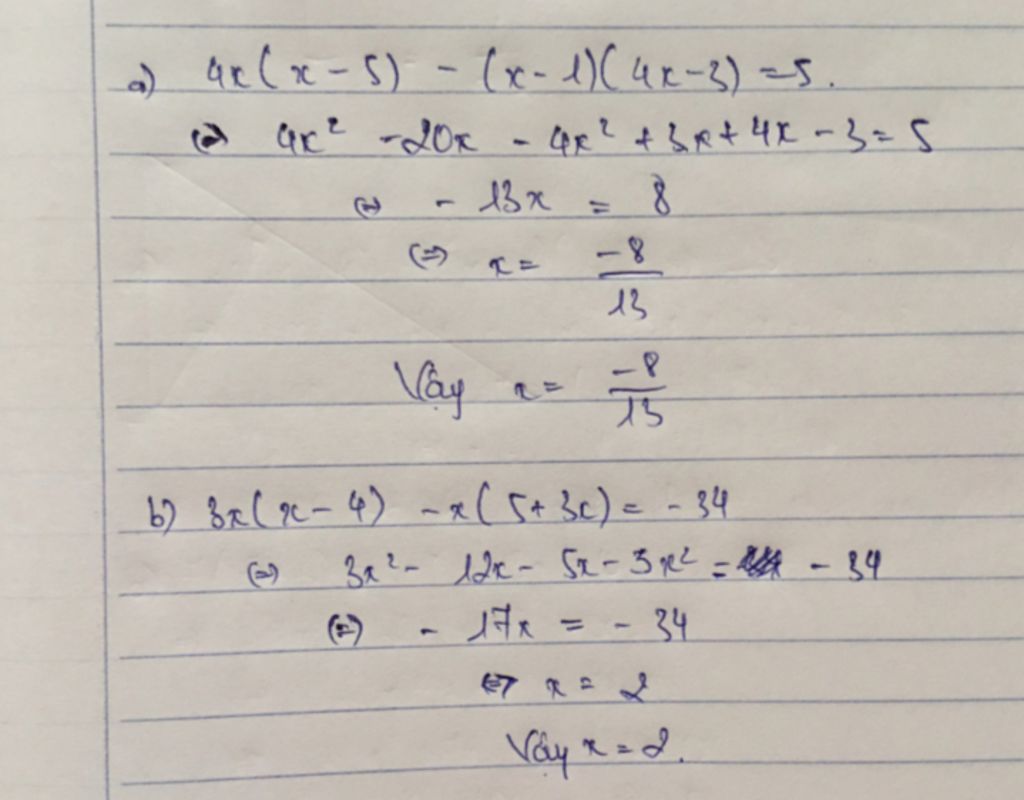 a) 4x(x - 5) - (x - 1)(4x - 3) = 5.
(=) 4x² - 20x - 4x² + 3x + 4x - 3 = 5
(=) - 13x = 8
(=) x = -8/13
Vậy x = -8/13
b) 3x(x - 4) - x(5 + 3x) = - 34
(=) 3x² - 12x - 5x - 3x² = - 34
(=) - 17x = - 34
(=) x = 2
Vậy x = 2.